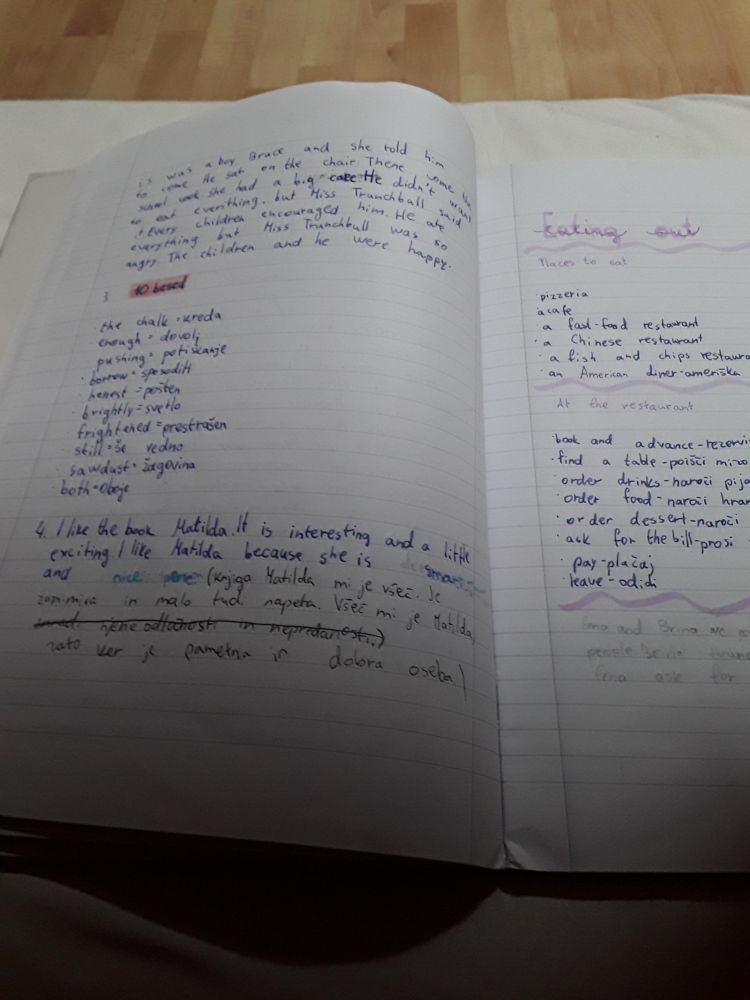 is was a boy Bruce and she told him
to come He sat on the chair. There come the
school cook she had a big cake He didn't want
to eat everithing, but Miss Trunchball said
it. Every children encouraged him. He ate
everything but Miss Trunchbull was so
angry. The children and he were happy.
3 10 besed
the chalk = kreda
enough = dovolj
pushing = potiskanje
· borrow = sposoditi
· honest = pošten
· brightly = svetlo
frightened = prestrašen
· still = še vedno
· sawdust = žagovina
· both = oboje
4. I like the book Matilda. It is interesting and a little
exciting. I like Matilda because she is smart
and nice (Knjiga Matilda mi je všeč. Je
zanimiva in malo tud napeta. Všeč mi je Matilda,
zarad njene odločnosti in nepridarnosti.)
zato ker je pametna in dobra oseba.)
Eating out
Places to eat
· pizzeria
a cafe
· a fast-food restaurant
· a Chinese restaurant
· a fish and chips restaura
· an American diner-ameriška
At the restaurant
· book and advance-rezervi
· find a table-poišči mizo
· order drinks-naroči pija
· order food-naroči hran
· order dessert-naroči
· ask for the bill-prosi
· pay-plačaj
· leave-odidi
Ema and Brina are
people Brina
Ema ask for